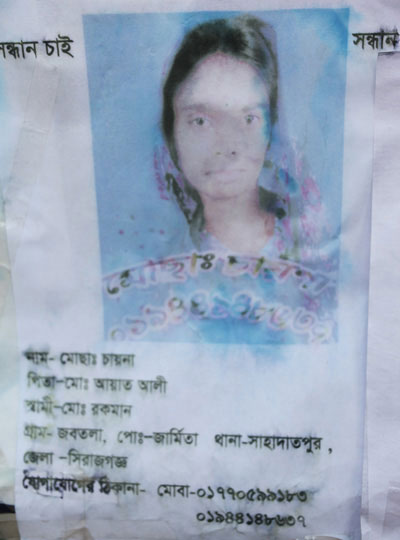 সন্ধান চাই
সন্ধান
মোছাঃ চায়না
নাম- মোছাঃ চায়না
পিতা-মোঃ আয়াত আলী
স্বামী-মোঃ রকমান
গ্রাম- জবতলা, পোঃ-জার্মিতা থানা-সাহাদাতপুর,
জেলা -সিরাজগঞ্জ
যোগাযোগের ঠিকানা- মোবা-০১৭৭০৫৯৯১৮৩
০১৯৪৪১৪৮৬৩৭